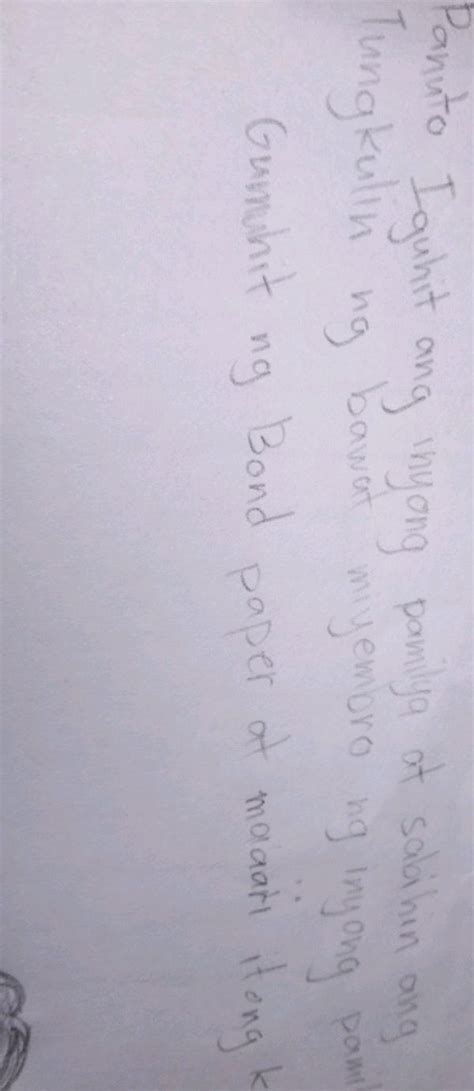 Panuto Iguhit ang inyong pamilya at sabihin ang
Tungkulin ng bawat miyembro ng inyong pami
Gumuhit ng Bond paper at maiaari itong k